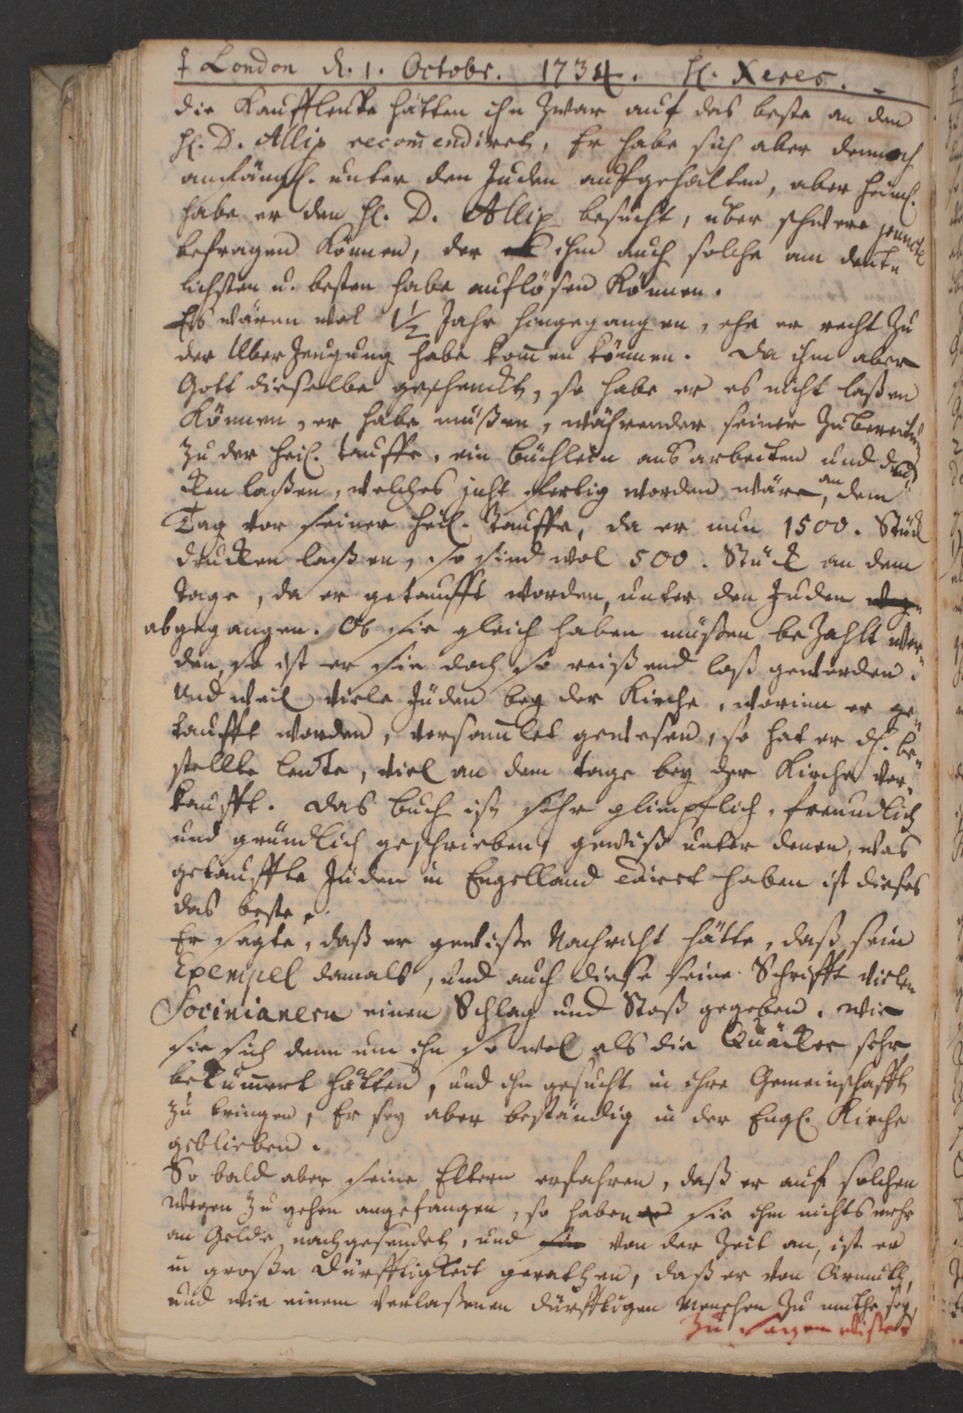 ‡ London d. 1. Octobr. 1734. H. Xeres.
die Kauffleute hätten ihn zwar auf das beste an den
H. D. Allix recom̄endiret, Er habe sich aber dennoch
anfängl. unter den Juden aufgehalten, aber heiml.
habe er den H. D. Allix besucht, über schwere punct
befragen können, der ihm auch solche am deut
lichsten u. besten habe auflösen können.
Es wären wol 1½ Jahr hingegangen, ehe er recht zu
der Uberzeugung habe kom̄en können. Da ihm aber
Gott dieselbe geschenckt, so habe er es nicht laßen
können, er habe müßen, währender seiner Zubereitung
zu der heil. Tauffe, ein büchlein ausarbeiten und dru
cken laßen, welches just fertig worden wäre, an dem
Tag vor seiner heil. Tauffe, da er nun 1500. Stück
drucken laßen, so sind wol 500. Stück an dem
Tage, da er getaufft worden, unter den Juden
abgegangen. Ob sie gleich haben müßen bezahlt wer-
den, so ist er sie doch so reißend loß geworden.
Und weil viele Juden bey der Kirche, worinn er ge-
taufft worden, versam̄let gewesen, so hat er d. be-
stellte leute, viel an dem tage bey der Kirche ver-
kaufft. Das buch ist sehr glimpflich, freundlich
und gründlich geschrieben, gewiß unter denen, was
getauffte Juden in Engelland ediret haben ist dieses
das beste.
Er sagte, daß er gewiße Nachricht hätte, daß sein
Exempel damals, und auch diese seine Schrifft vielen
Socinianern einen Schlag und Stoß gegeben. wie
sie sich denn um ihn so wol als die Quäcker sehr
bekümmert hätten, und ihn gesucht in ihre Gemeinschafft
zu bringen, Er sey aber beständig in der Engl. Kirche
geblieben.
So bald aber seine Eltern erfahren, daß er auf solchen
wegen zu gehen angefangen, so haben sie ihm nichts mehr
an Gelde nachgesendet, und von der Zeit an, ist er
in große Dürfftigkeit gerathen, daß er von Armuth,
und wie einem verlaßenen dürfftigen Menschen zu muthe sey,
zu sagen wiße